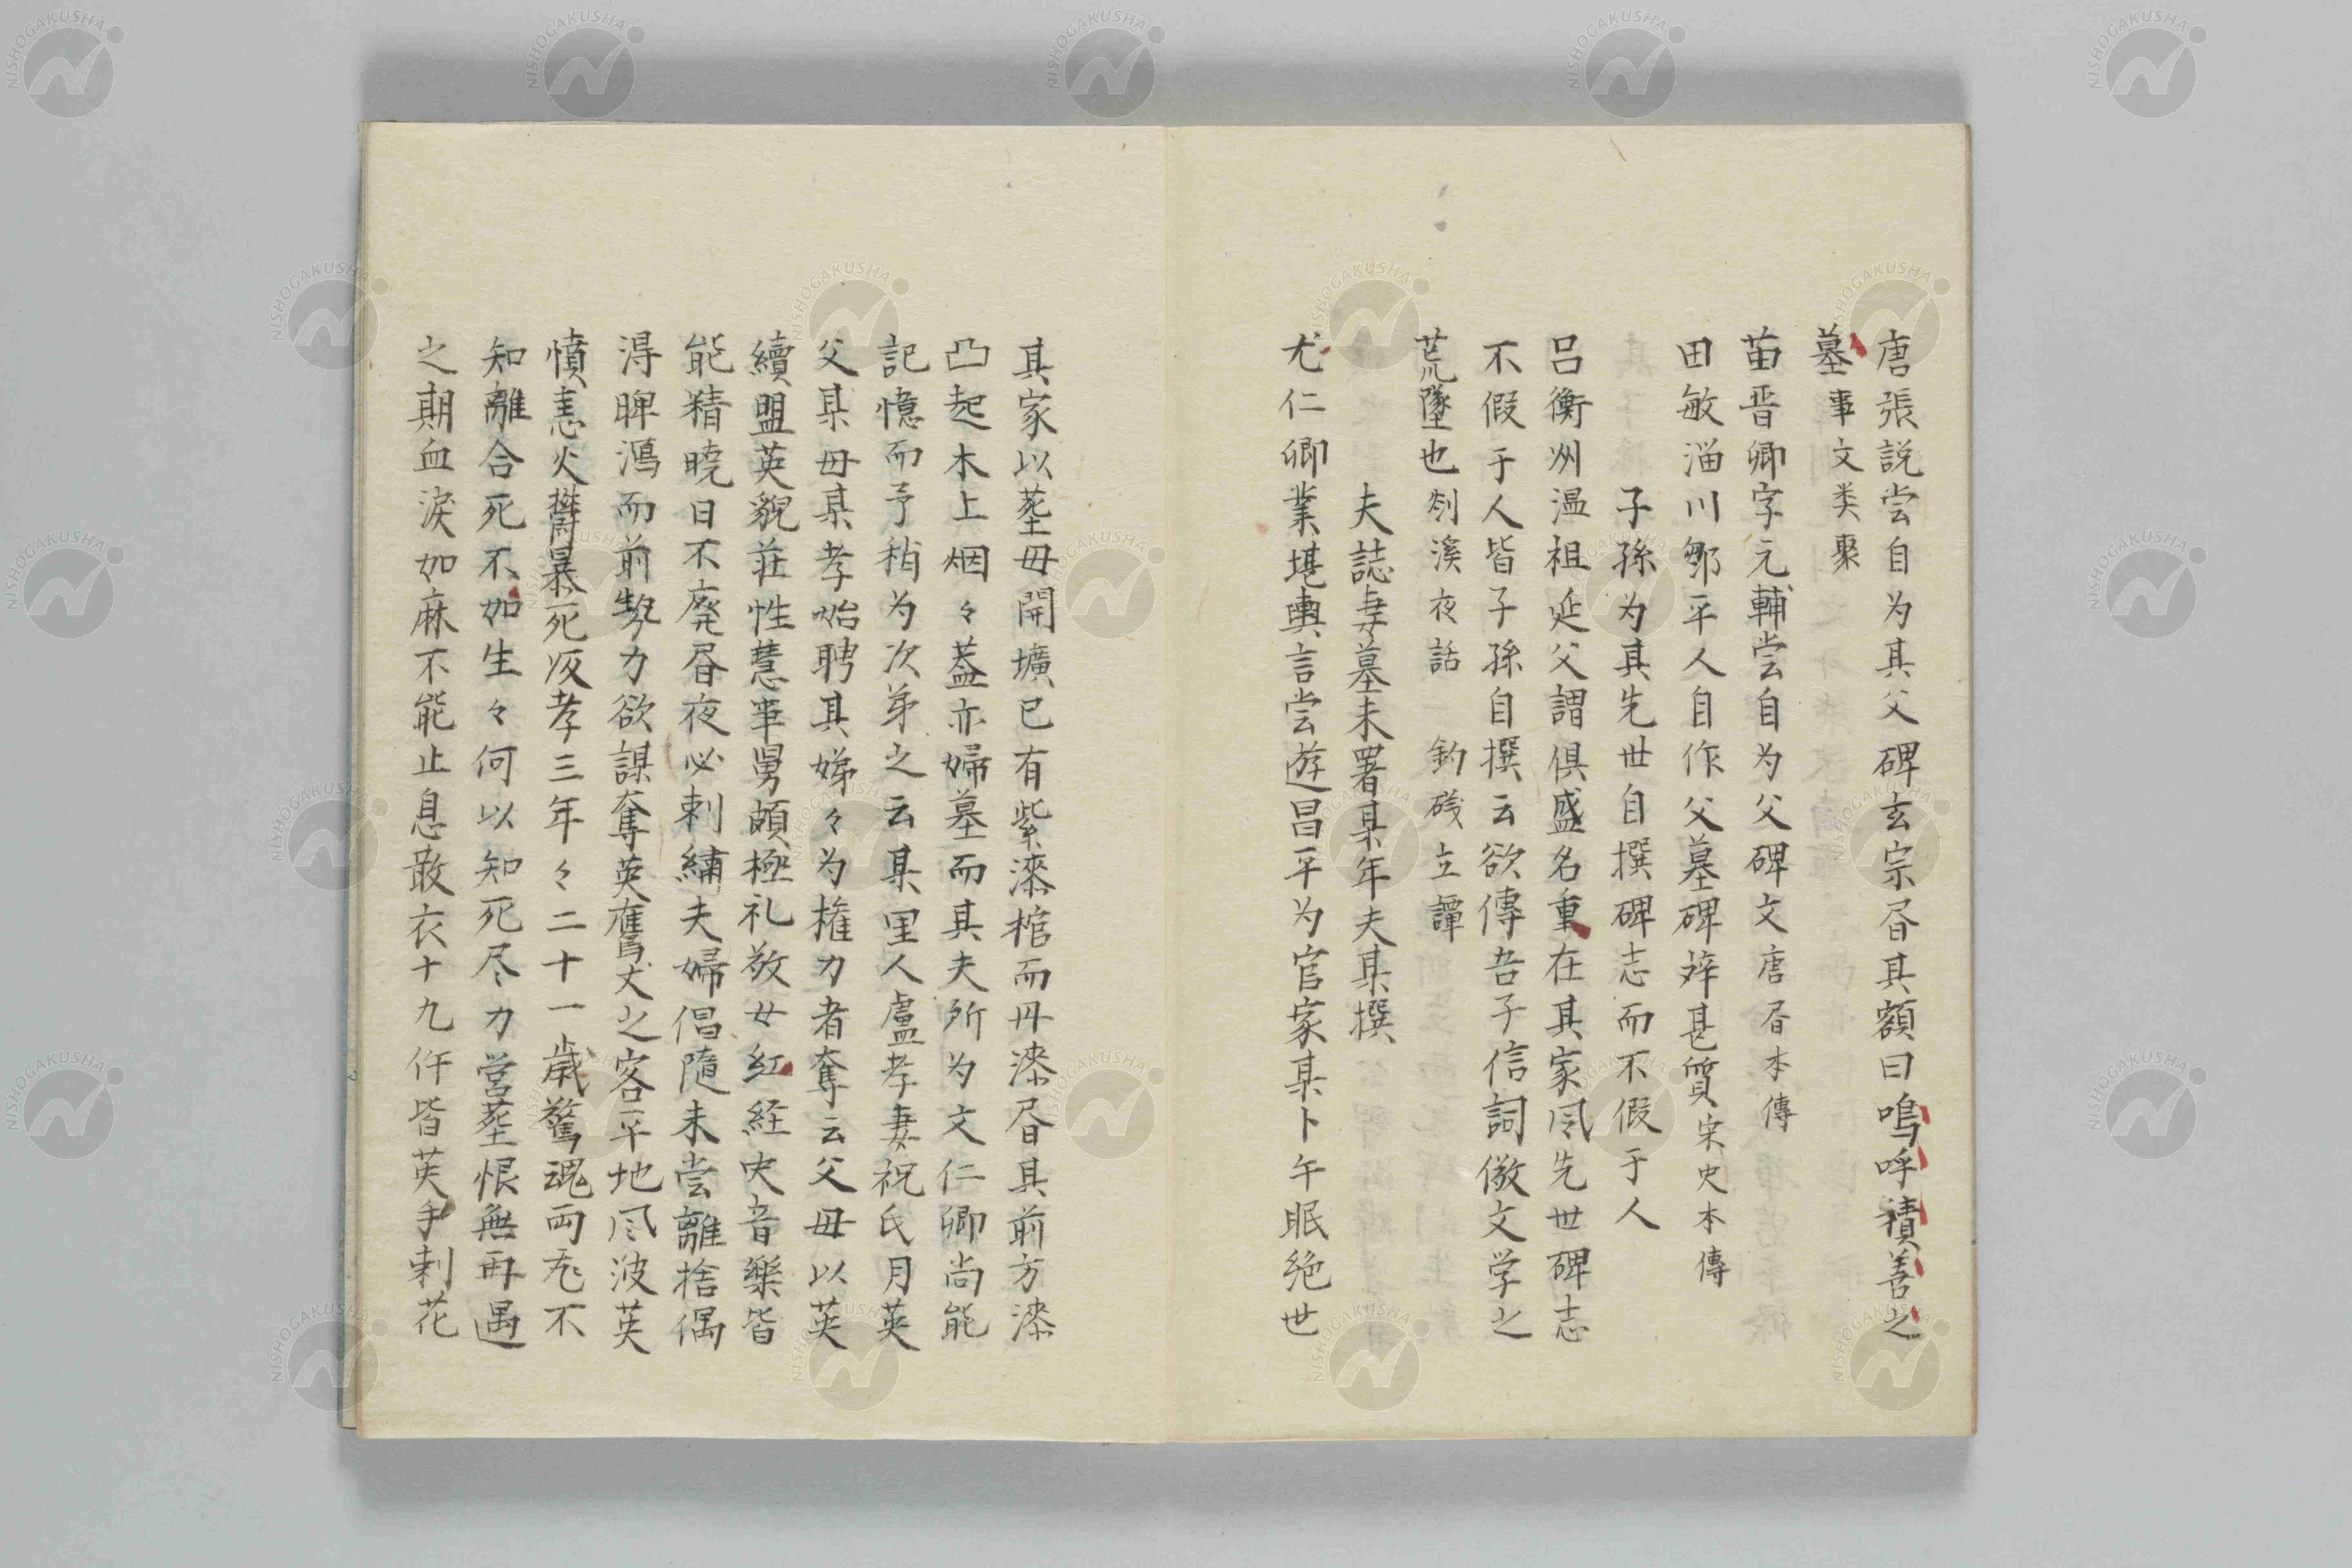 唐張説尝自为其父碑玄宗昏其額曰嗚呼積善之
墓事文类聚
苖晋卿字元輔尝自为父碑文唐昏本傳
田敏淄川鄒平人自作父墓碑辞甚質宋史本傳
子孫为其先世自撰碑志而不假于人
呂衡州温祖延父謂俱盛名重在其家风先世碑志
不假于人皆子孫自撰云欲傳吾子信詞儆文学之
荒墜也剡溪夜話 釣磯立譚
夫誌妻墓未署某年夫某撰
尤仁卿業堪輿言尝遊昌平为官家某卜午眠绝世
其家以塟母開壙已有紫漆棺而丹漆昏其前方漆
凸起木上烟々葢亦婦墓而其夫所为文仁卿尚能
記憶而予稍为次第之云某里人盧孝妻祝氏月英
父某母某孝始聘其娣々为権力者奪云父母以英
續盟英貌荘性慧事舅頗極礼敬女紅経史音樂皆
能精曉日不廃昏夜必刺繡夫婦倡隨未尝離捨偶
得睥鴻而前势力欲謀奪英舊丈之客平地风波英
憤恚火欝暴死返孝三年々二十一歳驚魂両无不
知離合死不如生々何以知死尽力営塟恨無再遇
之期血涙如麻不能止息敢衣十九件皆英手刺花